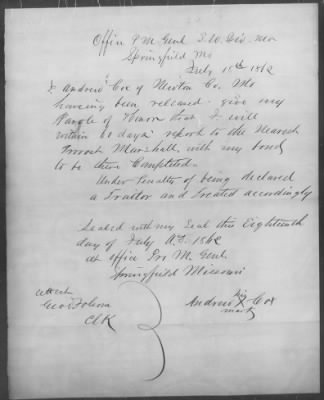 Office P M Genl S. W. Div. Mo
Springfield Mo
July 18th 1862
I Andrew Cox of Newton Co. Mo
having been released give my
Parole of Honor that I will
within 60 days report to the Nearest
Provost Marshall, with my bond
to be there Completed.
Under Penalty of being declared
a Traitor and treated accordingly
Sealed with my Seal this Eighteenth
day of July A.D. 1862
at office Pro M. Genl.
Springfield Missouri
Attest
Geo Folsom
Clk
Andrew his X mark Cox